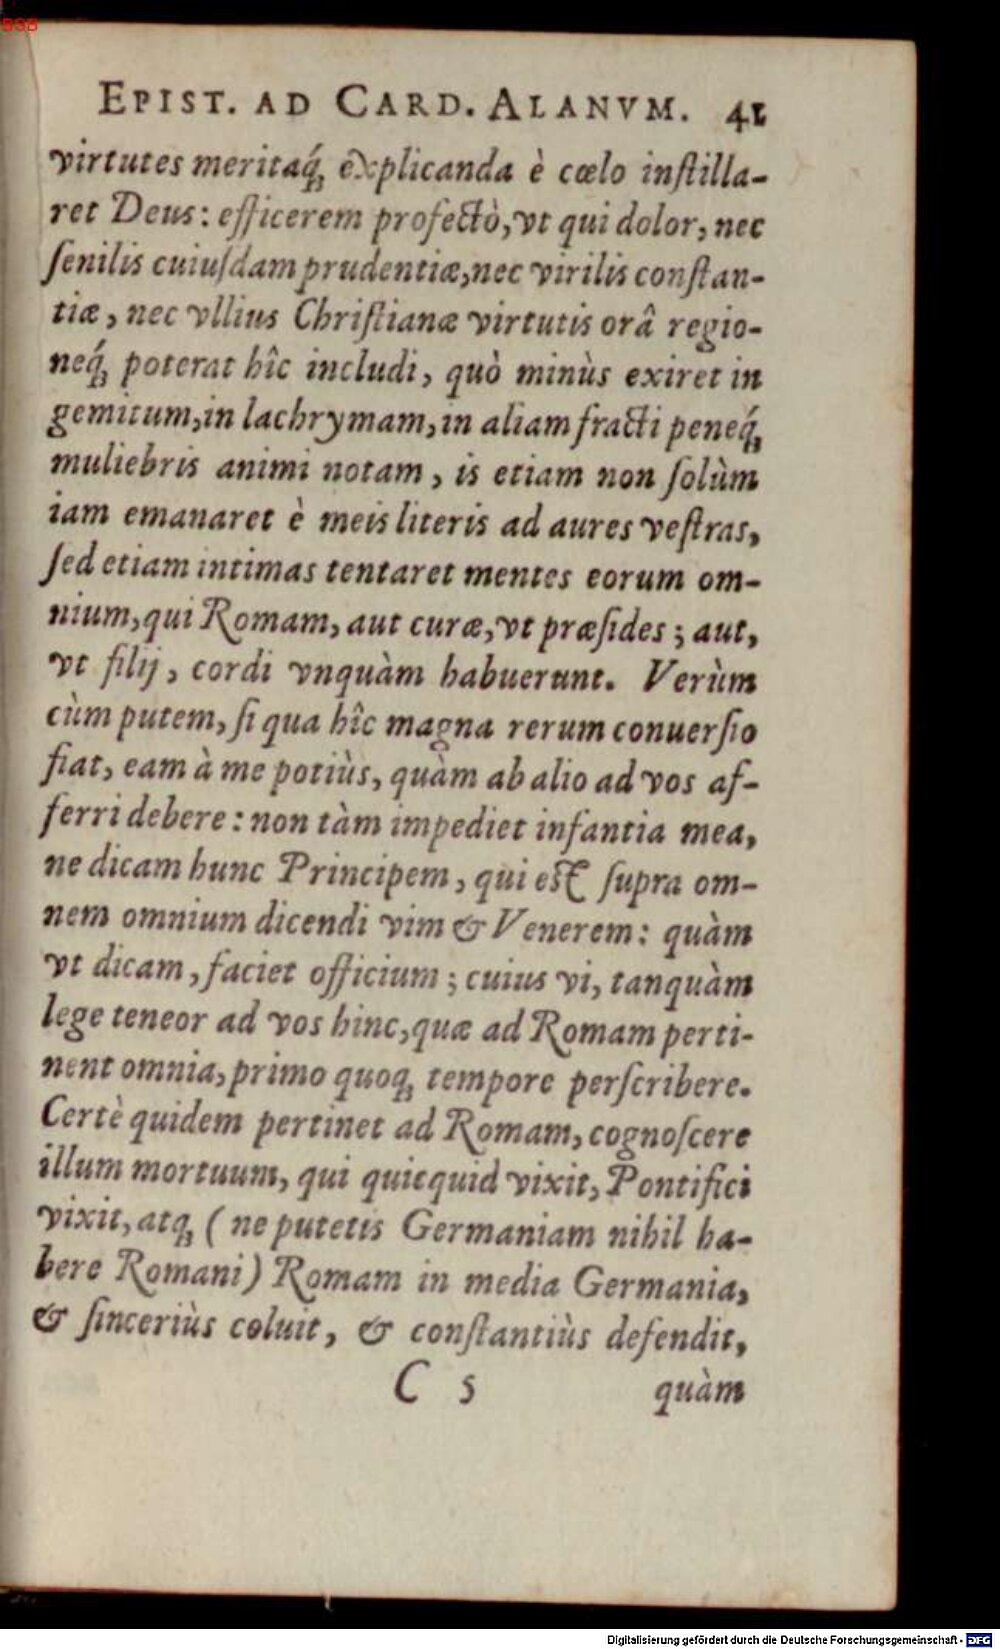 EPIST. AD CARD. ALANVM. 41
virtutes meritaq́; explicanda è cœlo inſtilla-
ret Deus: efficerem profectò, vt qui dolor, nec
ſenilis cuiuſdam prudentiæ, nec virilis conſtan-
tiæ, nec vllius Chriſtianæ virtutis orâ regio-
neq́; poterat hîc includi, quò minùs exiret in
gemitum, in lachrymam, in aliam fracti peneq́;
muliebris animi notam, is etiam non ſolùm
iam emanaret è meis literis ad aures veſtras,
ſed etiam intimas tentaret mentes eorum om-
nium, qui Romam, aut curæ, vt præſides; aut,
vt filij, cordi vnquàm habuerunt. Verùm
cùm putem, ſi qua hîc magna rerum conuerſio
fiat, eam à me potiùs, quàm ab alio ad vos af-
ferri debere: non tàm impediet infantia mea,
ne dicam hunc Principem, qui eſt ſupra om-
nem omnium dicendi vim & Venerem: quàm
vt dicam, faciet officium; cuius vi, tanquàm
lege teneor ad vos hinc, quæ ad Romam perti-
nent omnia, primo quoq; tempore perſcribere.
Certè quidem pertinet ad Romam, cognoſcere
illum mortuum, qui quicquid vixit, Pontifici
vixit, atq; ( ne putetis Germaniam nihil ha-
bere Romani) Romam in media Germania,
& ſinceriùs coluit, & conſtantiùs defendit,
C 5 quàm
Digitalisierung gefördert durch die Deutsche Forschungsgemeinschaft - DFG